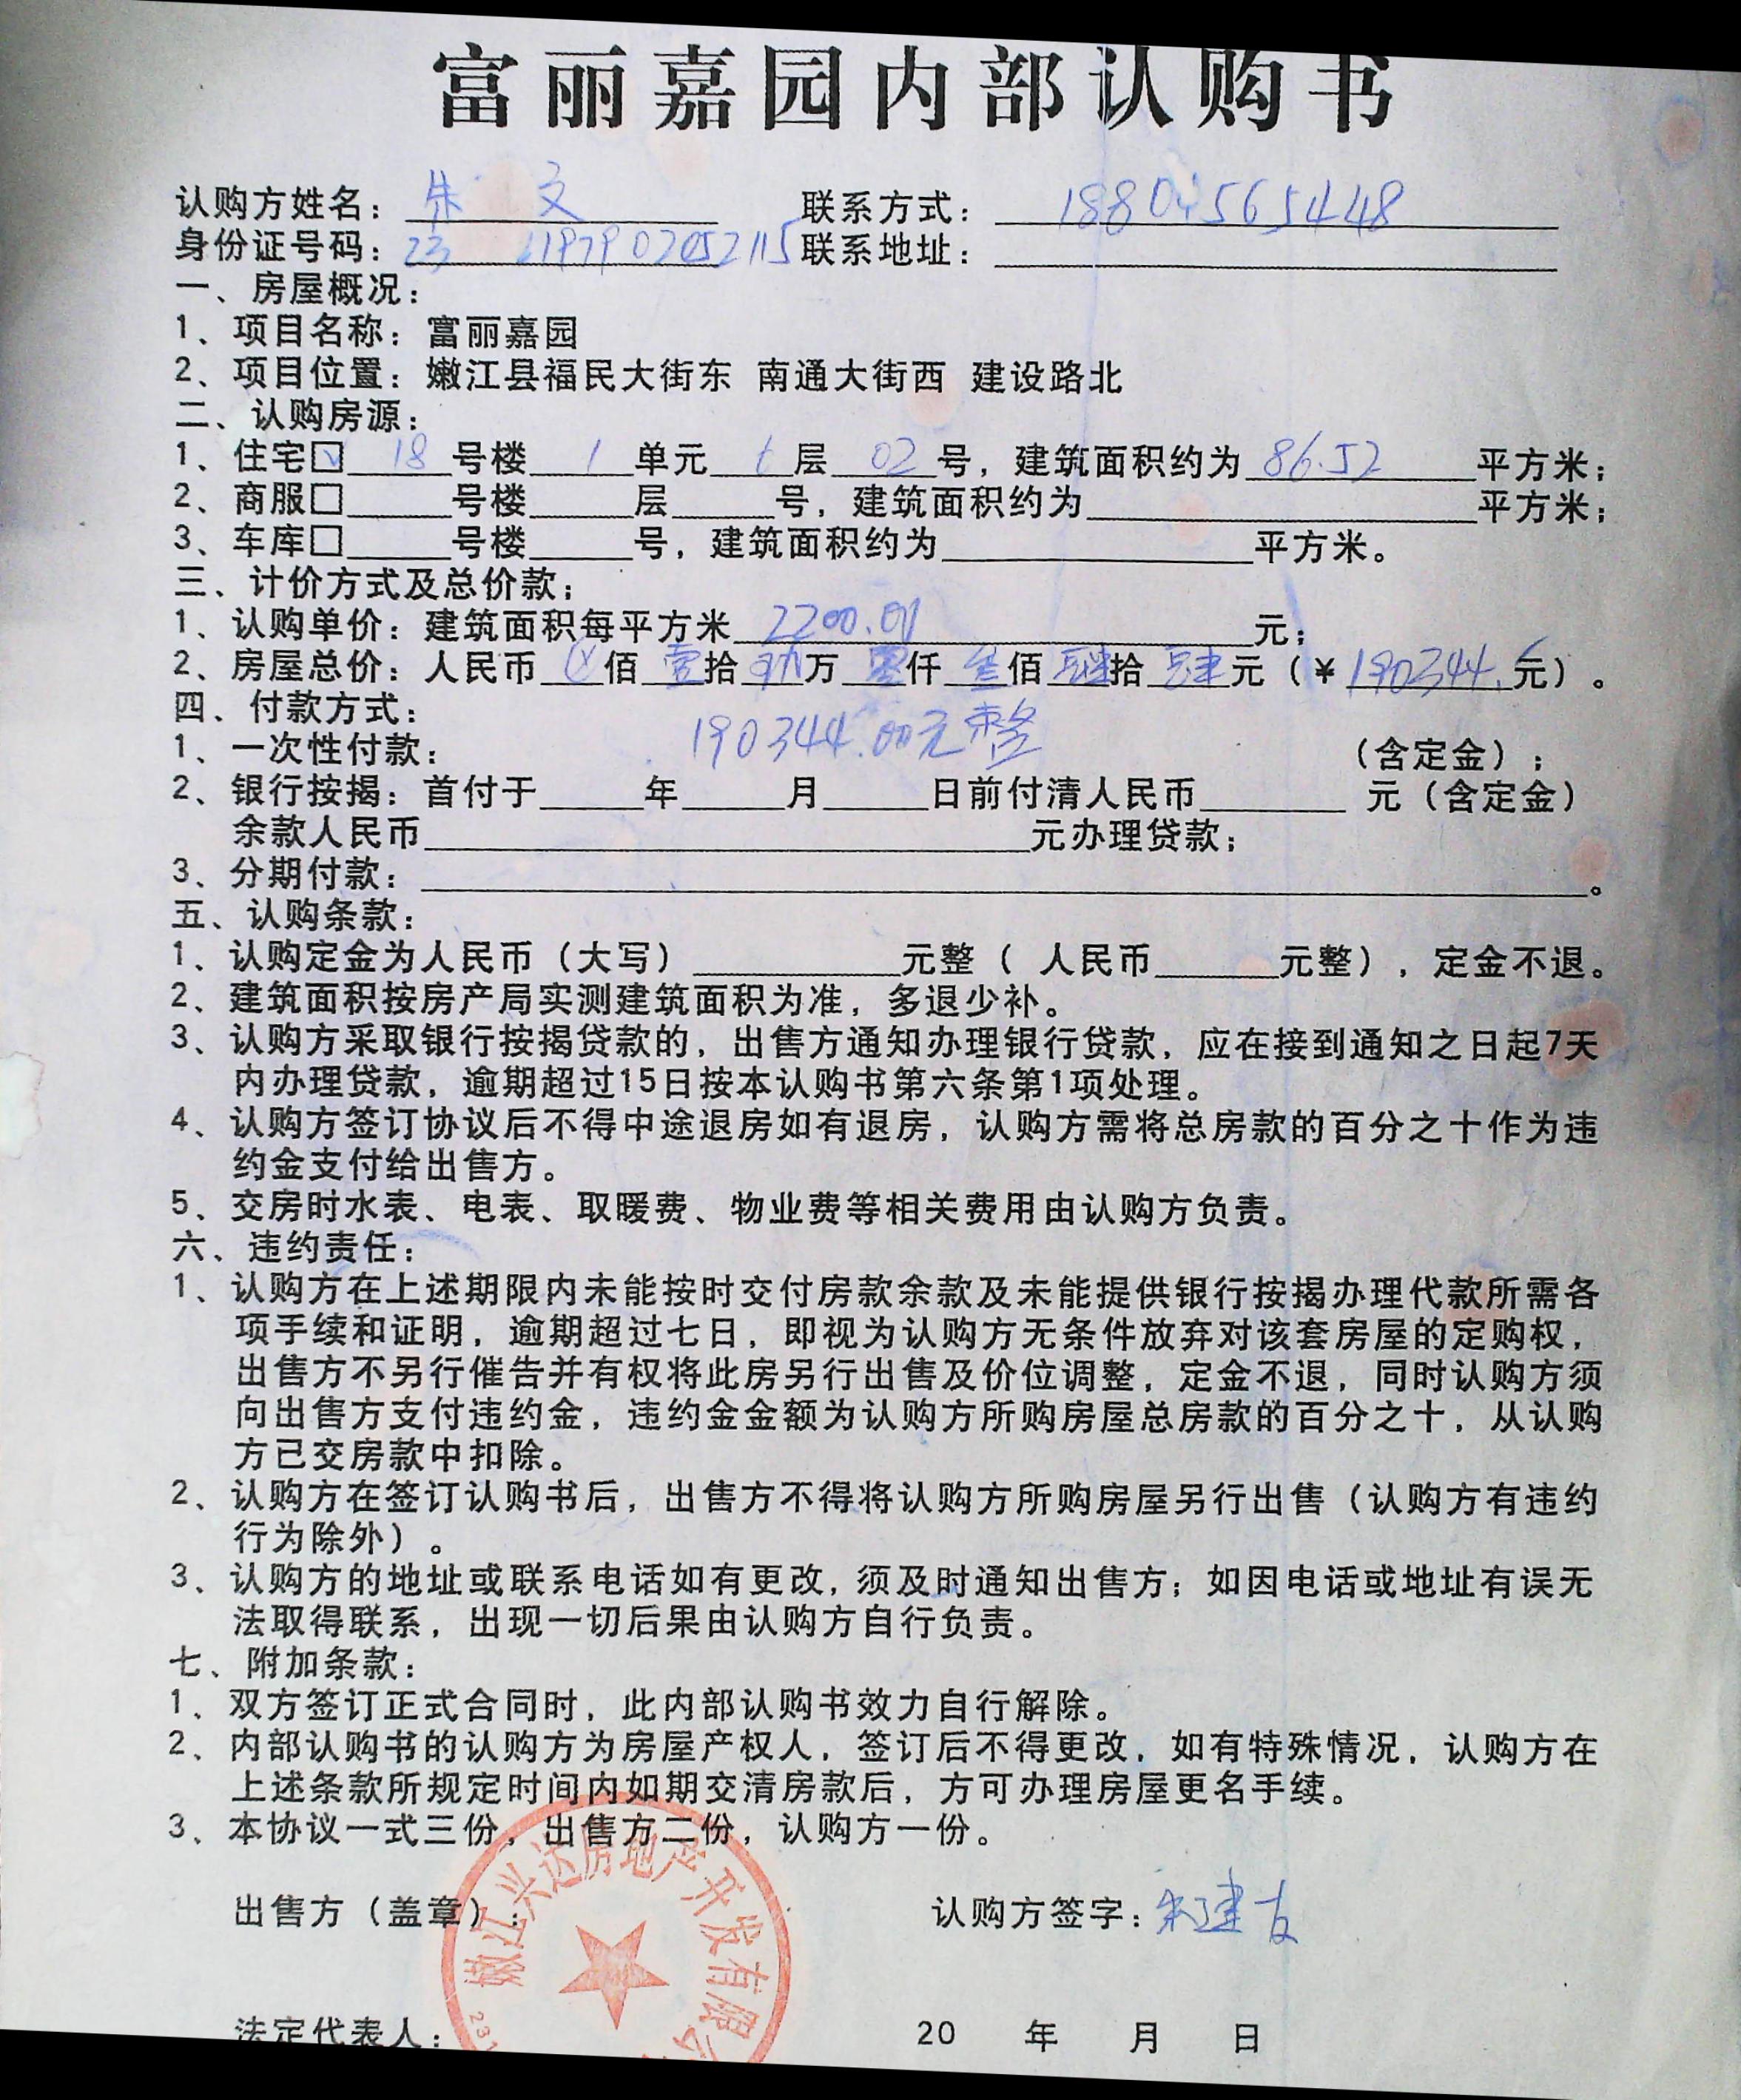 富丽嘉园内部认购书
认购方姓名：朱 文 联系方式：18804565448
身份证号码：23 1197907052115 联系地址：
一、房屋概况：
1、项目名称：富丽嘉园
2、项目位置：嫩江县福民大街东 南通大街西 建设路北
二、认购房源：
1、住宅☑ 18 号楼 1 单元 层 02 号，建筑面积约为 86.52 平方米；
2、商服□ 号楼 层 号，建筑面积约为 平方米；
3、车库□ 号楼 号，建筑面积约为 平方米。
三、计价方式及总价款；
1、认购单价：建筑面积每平方米 2200.01 元；
2、房屋总价：人民币 佰 壹拾 玖万 零仟 叁佰 肆拾 肆元（￥190344. 元）。
四、付款方式：
1、一次性付款： 190344.00元整 （含定金）；
2、银行按揭：首付于 年 月 日前付清人民币 元（含定金）
余款人民币 元办理贷款；
3、分期付款： 。
五、认购条款：
1、认购定金为人民币（大写） 元整（ 人民币 元整），定金不退。
2、建筑面积按房产局实测建筑面积为准，多退少补。
3、认购方采取银行按揭贷款的，出售方通知办理银行贷款，应在接到通知之日起7天
内办理贷款，逾期超过15日按本认购书第六条第1项处理。
4、认购方签订协议后不得中途退房如有退房，认购方需将总房款的百分之十作为违
约金支付给出售方。
5、交房时水表、电表、取暖费、物业费等相关费用由认购方负责。
六、违约责任：
1、认购方在上述期限内未能按时交付房款余款及未能提供银行按揭办理代款所需各
项手续和证明，逾期超过七日，即视为认购方无条件放弃对该套房屋的定购权，
出售方不另行催告并有权将此房另行出售及价位调整，定金不退，同时认购方须
向出售方支付违约金，违约金金额为认购方所购房屋总房款的百分之十，从认购
方已交房款中扣除。
2、认购方在签订认购书后，出售方不得将认购方所购房屋另行出售（认购方有违约
行为除外）。
3、认购方的地址或联系电话如有更改，须及时通知出售方；如因电话或地址有误无
法取得联系，出现一切后果由认购方自行负责。
七、附加条款：
1、双方签订正式合同时，此内部认购书效力自行解除。
2、内部认购书的认购方为房屋产权人，签订后不得更改，如有特殊情况，认购方在
上述条款所规定时间内如期交清房款后，方可办理房屋更名手续。
3、本协议一式三份，出售方二份，认购方一份。
嫩江兴达房地产开发有限公
231
出售方（盖章）： 认购方签字：朱建友
法定代表人： 20 年 月 日